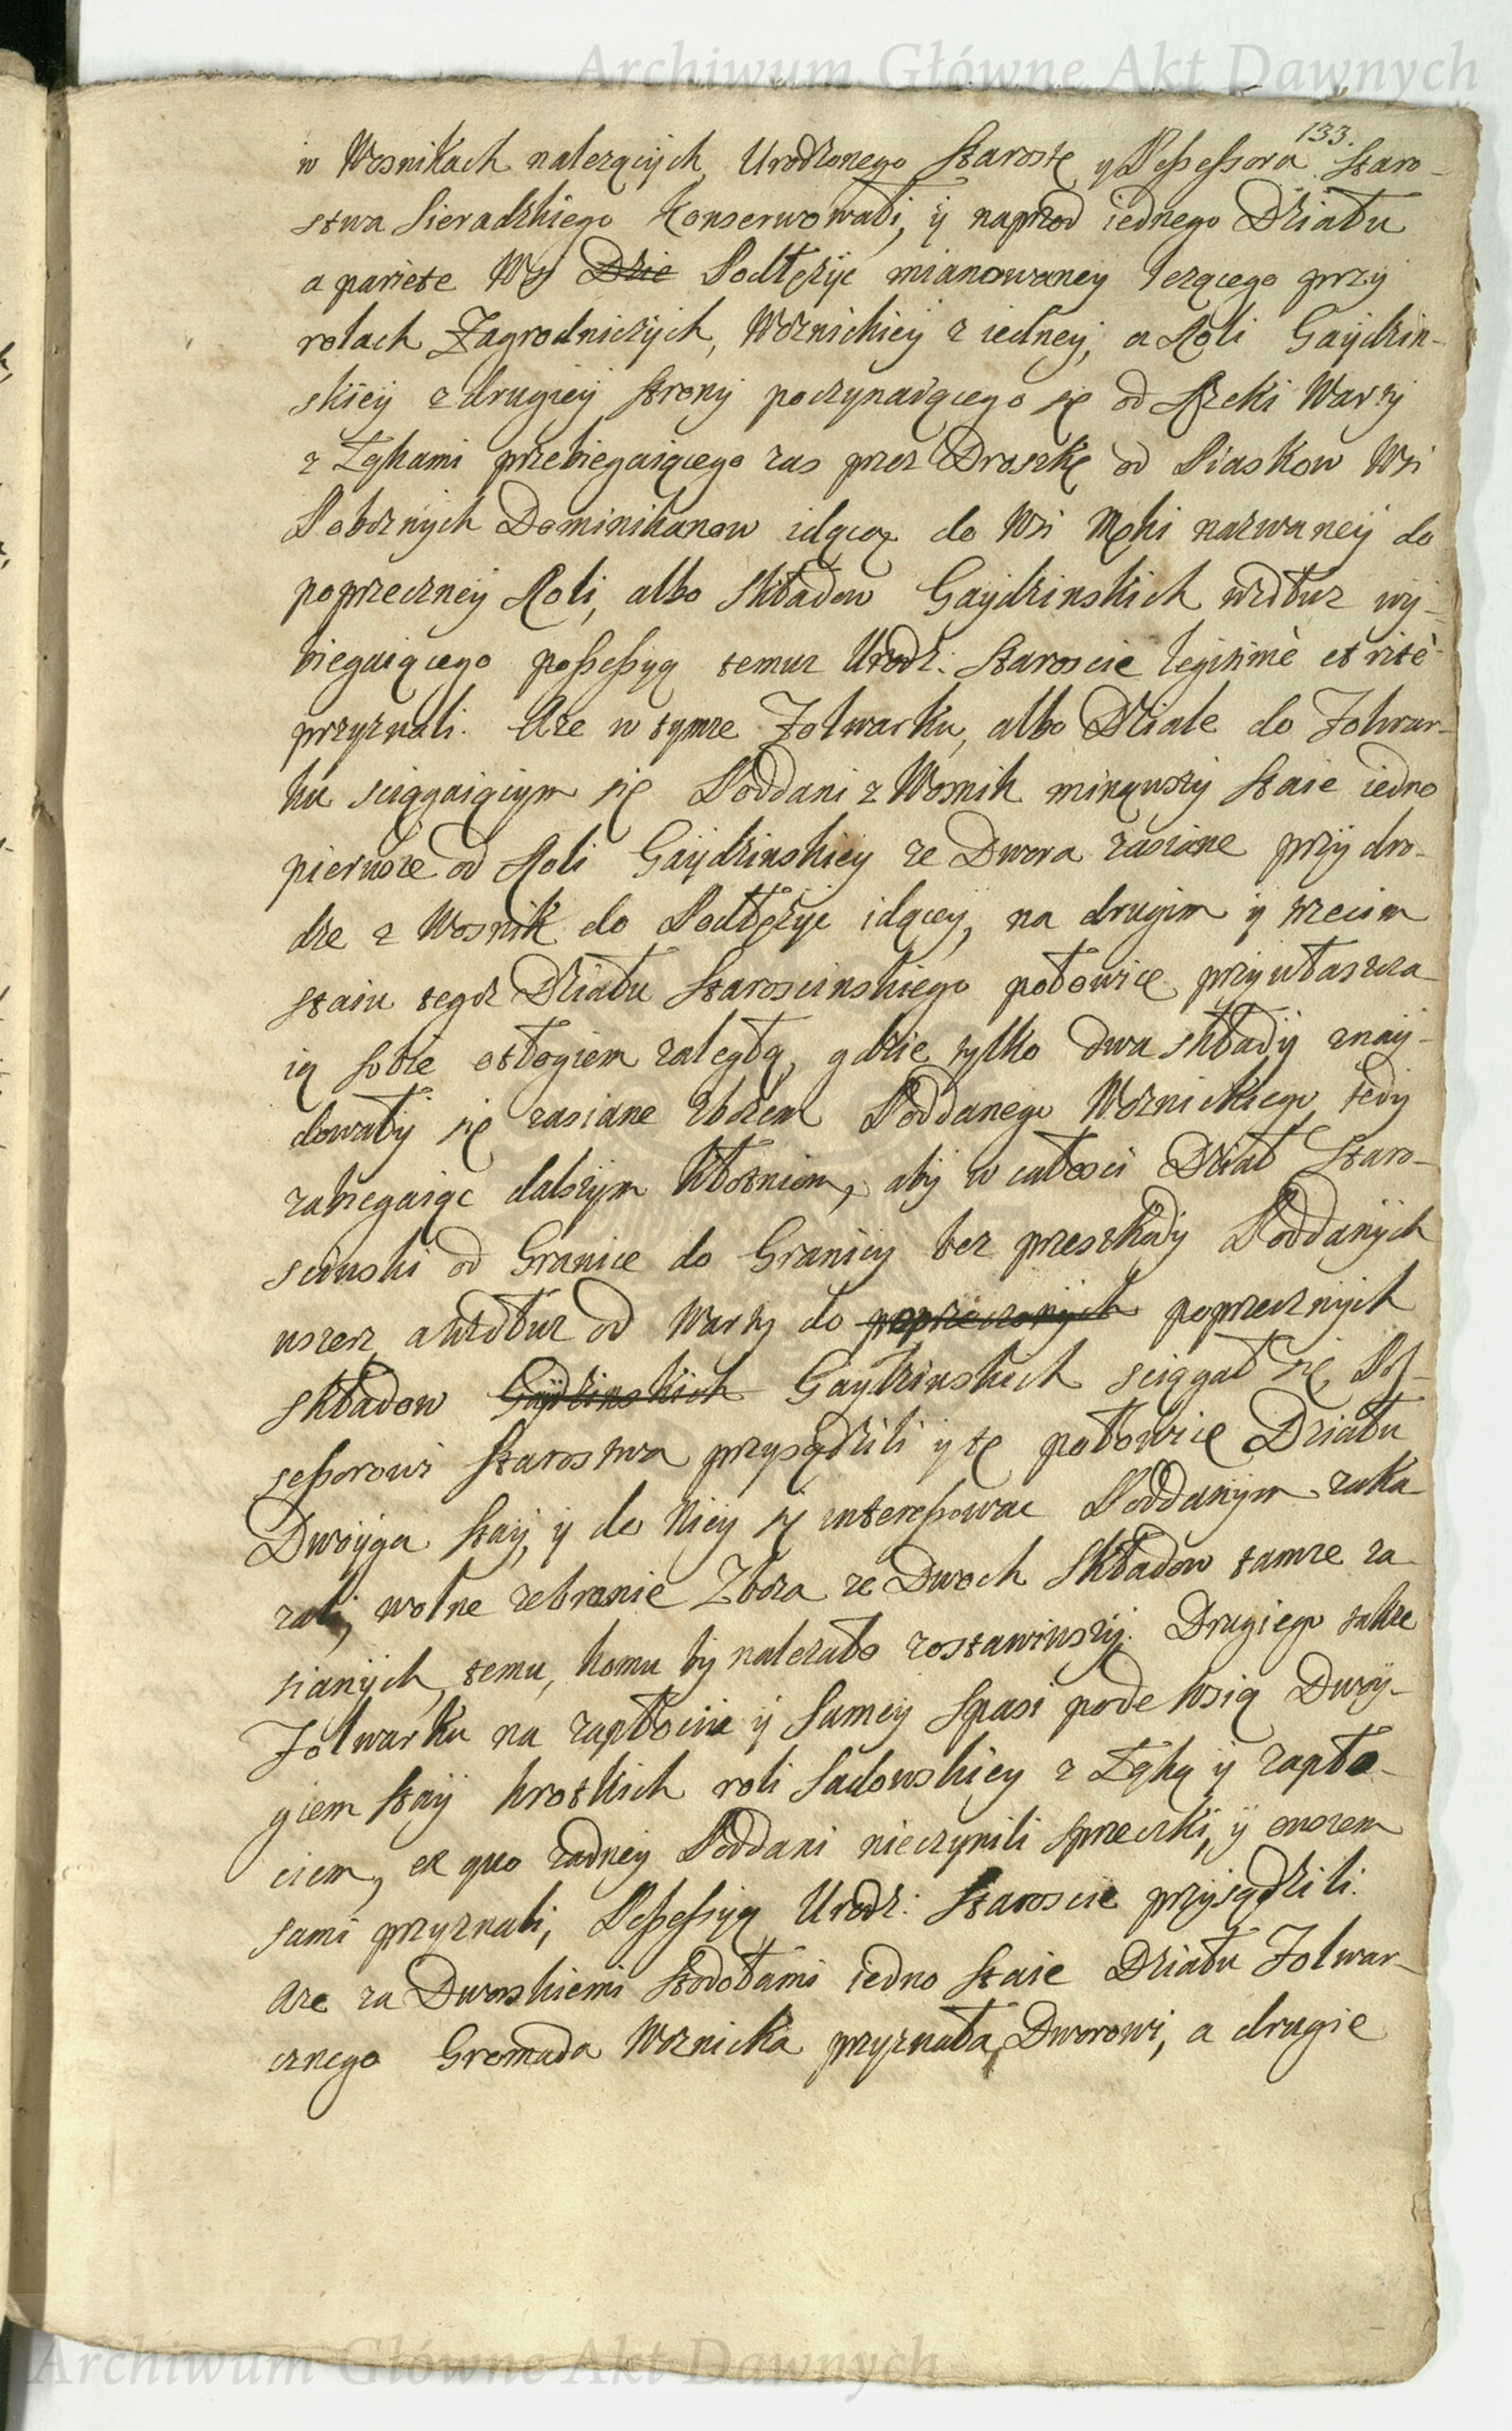 Archiwum Główne Akt Dawnych
133.
w Wosnikach należących, Urodzonego Starostę y Possessora Staro-
stwa Sieradzkiego konserwowali, ÿ naprzod iednego Działu
a pariete Wsi Dzie Podłężÿc mianowaneÿ leżącego przÿ
rolach Zagrodniczÿch, Woznickieÿ z iedneÿ, a Roli Gaÿdzin-
skieÿ z drugieÿ stronÿ poczynaiącego się od Rzeki Wartÿ
z Łąkami przebiegaiącego zas przez Drożkę od Piaskow Wsi
Pobożnÿch Dominikanow idącą do Wsi Męki nazwaneÿ do
poprzeczneÿ Roli, albo składow Gaÿdzinskich wzdłuz wÿ-
biegaiącego possessyą temuz Urodz: Staroscie legitimè et ritè
przyznali. Aze w tymze Folwarku, albo Dziale do Folwar-
ku sciągaiącym się Poddani z Wosnik minąwszÿ staie iedno
pierwsze od Roli Gaÿdzinskieÿ ze Dwora zasiane przÿ dro-
dze z Wosnik do Podłężÿc idąceÿ, na drugim ÿ trzecim
staiu tegoz Działu Staroscinskiego połowicę przÿwłaszcza-
ią sobie odłogiem zaległą, gdzie tylko dwa składÿ znaÿ-
dowałÿ się zasiane zbożem Poddanego Woznickiego, tedÿ
zabiegaiąc dalszÿm kłotniom, abÿ w całości Dział Staro-
scinski od Granice do Granicÿ bez przeszkodÿ Poddanÿch
wszerz, a wzdłuz od Wartÿ do poprzecznÿch poprzecznÿch
składow Gaÿdzinskich Gaydzinskich sciągał się, Pos-
sessorowi Starostwa przysądzili ÿ tę połowicę Działu
Dwoÿga staÿ, ÿ do Nieÿ się interessowac Poddanÿm zaka-
zali, wolne zebranie Zboza ze Dwoch Składow tamze za-
sianÿch, temu, komu bÿ należało zostawiwszÿ. Drugiego takze
Folwarku na zapłociu ÿ Sameÿ Spasi pode wsią Dwoÿ-
giem staÿ krotkich roli Sadowskieÿ z Łąką ÿ zapło-
ciem, ex quo żadneÿ Poddani nieczÿnili sprzeczki, ÿ owszem
sami przyznali, Possessyą Urodz: Staroscie przÿsądzili.
Aze za Dworskiemi stodołami iedno staie Działu Folwar-
cznego Gromada Woznicka przyznała Dworowi, a drugie
Archiwum Główne Akt Dawnych